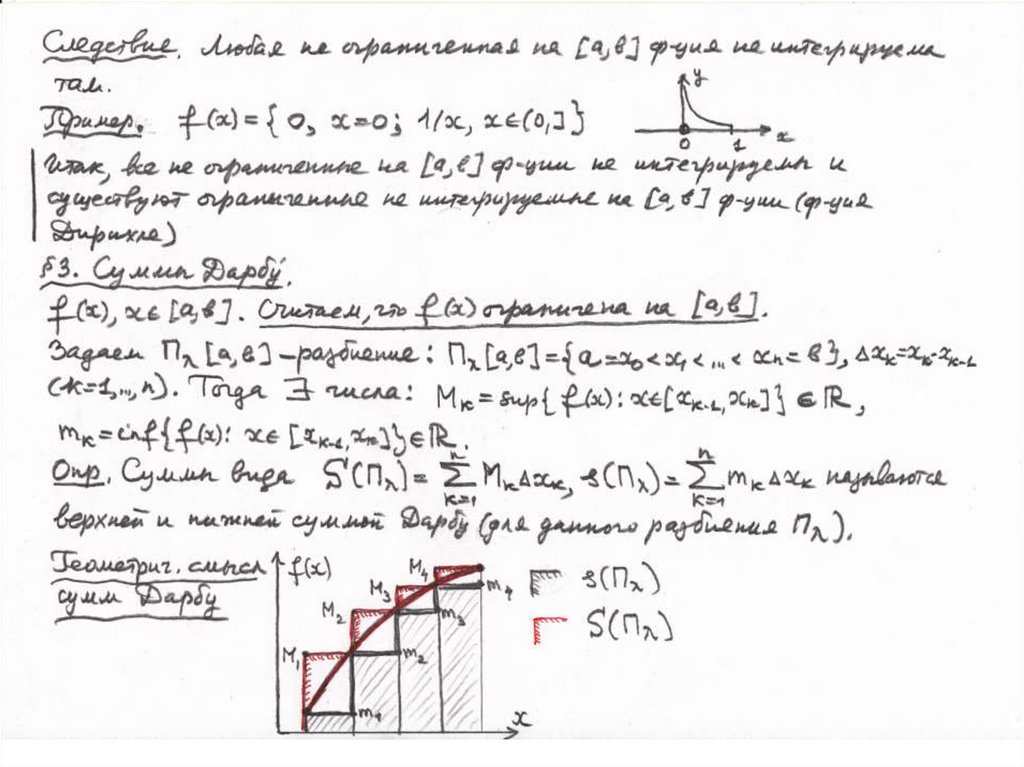 Следствие. Любая не ограниченная на [a,b] ф-ция не интегрируема
там.
Пример. f(x)={0, x=0; 1/x, x∈(0,1]}
y
0 1 x
Итак, все не ограниченные на [a,b] ф-ции не интегрируемы и
существуют ограниченные не интегрируемые на [a,b] ф-ции (ф-ция
Дирихле)
§3. Суммы Дарбу́.
f(x), x∈[a,b]. Считаем, что f(x) ограничена на [a,b].
Задаем Πλ[a,b] – разбиение: Πλ[a,b]={a=x₀<x₁<...<xₙ=b}, Δxₖ=xₖ-xₖ₋₁
(k=1,...,n). Тогда ∃ числа: Mₖ=sup{f(x): x∈[xₖ₋₁,xₖ]}∈ℝ,
mₖ=inf{f(x): x∈[xₖ₋₁,xₖ]}∈ℝ.
Опр. Суммы вида S(Πλ)=∑ₖ₌₁ⁿ MₖΔxₖ, s(Πλ)=∑ₖ₌₁ⁿ mₖΔxₖ называются
верхней и нижней суммой Дарбу (для данного разбиения Πλ).
Геометрич. смысл
сумм Дарбу
f(x)
M₁ M₂ M₃ M₄
m₁ m₂ m₃ m₄
x
s(Πλ)
S(Πλ)